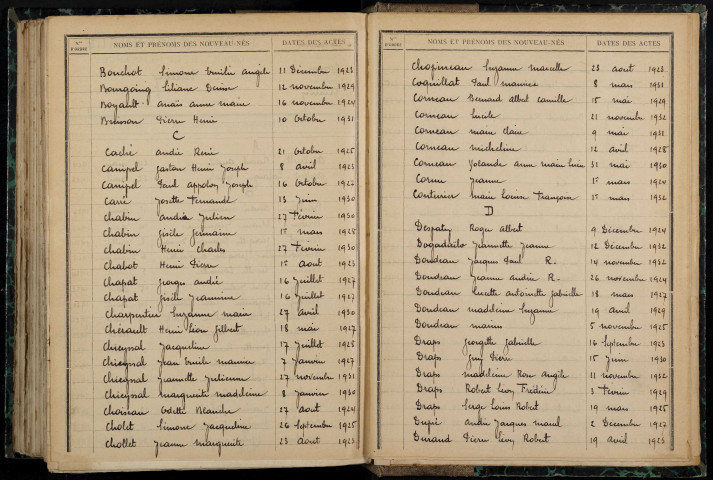 Nos D'ORDRE NOMS ET PRÉNOMS DES NOUVEAU-NÉS DATES DES ACTES
Bouchot Simone Emilie Angèle 11 Décembre 1923
Bourgoing Liliane Denise 12 novembre 1929
Boyault anaïs anne marie 16 novembre 1924
Brisson Pierre Henri 10 Octobre 1931
C
Caché andré René 21 Octobre 1925
Canipel gaston Henri Joseph 8 avril 1923
Canipel Paul Joseph 16 Octobre 1927
Carré Josette Fernande 13 Juin 1930
Chabin andré Julien 27 Février 1930
Chabin gisèle germaine 1er mars 1928
Chabin Henri Charles 27 Février 1930
Chabot Henri Pierre 1er aout 1923
Chapat georges andré 16 Juillet 1927
Chapat gisèle Jeannine 16 Juillet 1927
Charpentier Suzanne marie 27 avril 1930
Chérault Henri Léon gilbert 18 mai 1927
Chicyssal Jacqueline 17 Juillet 1925
Chicyssal Jean Emile maurice 7 Janvier 1927
Chicyssal Jeannette Julienne 27 novembre 1931
Chicyssal marguerite madeleine 8 Janvier 1930
Choinan Odette Blanche 27 aout 1924
Cholet Simone Jacqueline 26 Septembre 1925
Chollet Jeanne marguerite 23 aout 1923
Nos D'ORDRE NOMS ET PRÉNOMS DES NOUVEAU-NÉS DATES DES ACTES
Chopineau Suzanne marcelle 23 aout 1923
Coquillat Paul maurice 8 mars 1931
Corneau Bernard Albert camille 15 mai 1929
Corneau Lucile 21 novembre 1932
Corneau marie claire 9 mai 1931
Corneau micheline 12 avril 1928
Corneau Jolande anne marie Lucie 31 mai 1930
Cornu Jeanne 1er mars 1924
Couturier marie Louise Françoise 1er mars 1932
D
Despaty Roger albert 9 Décembre 1924
Dogadailo Jeannette Jeanne 12 Décembre 1932
Doudeau Jacques Paul R. 14 novembre 1932
Doudeau Jeanne andrée R. 26 novembre 1924
Doudeau Lucette antoinette gabrielle 18 mars 1927
Doudeau madeleine Suzanne 19 avril 1929
Doudeau marius 5 novembre 1925
Draps georgette gabrielle 16 Septembre 1923
Draps Guy Pierre 15 Juin 1930
Draps madeleine Rose angèle 11 novembre 1932
Draps Robert Léon Frédéric 3 Février 1929
Draps Serge Louis Robert 19 mars 1925
Dupié andré Jacques marcel 2 Décembre 1927
Durand Pierre Léon Robert 19 avril 1923